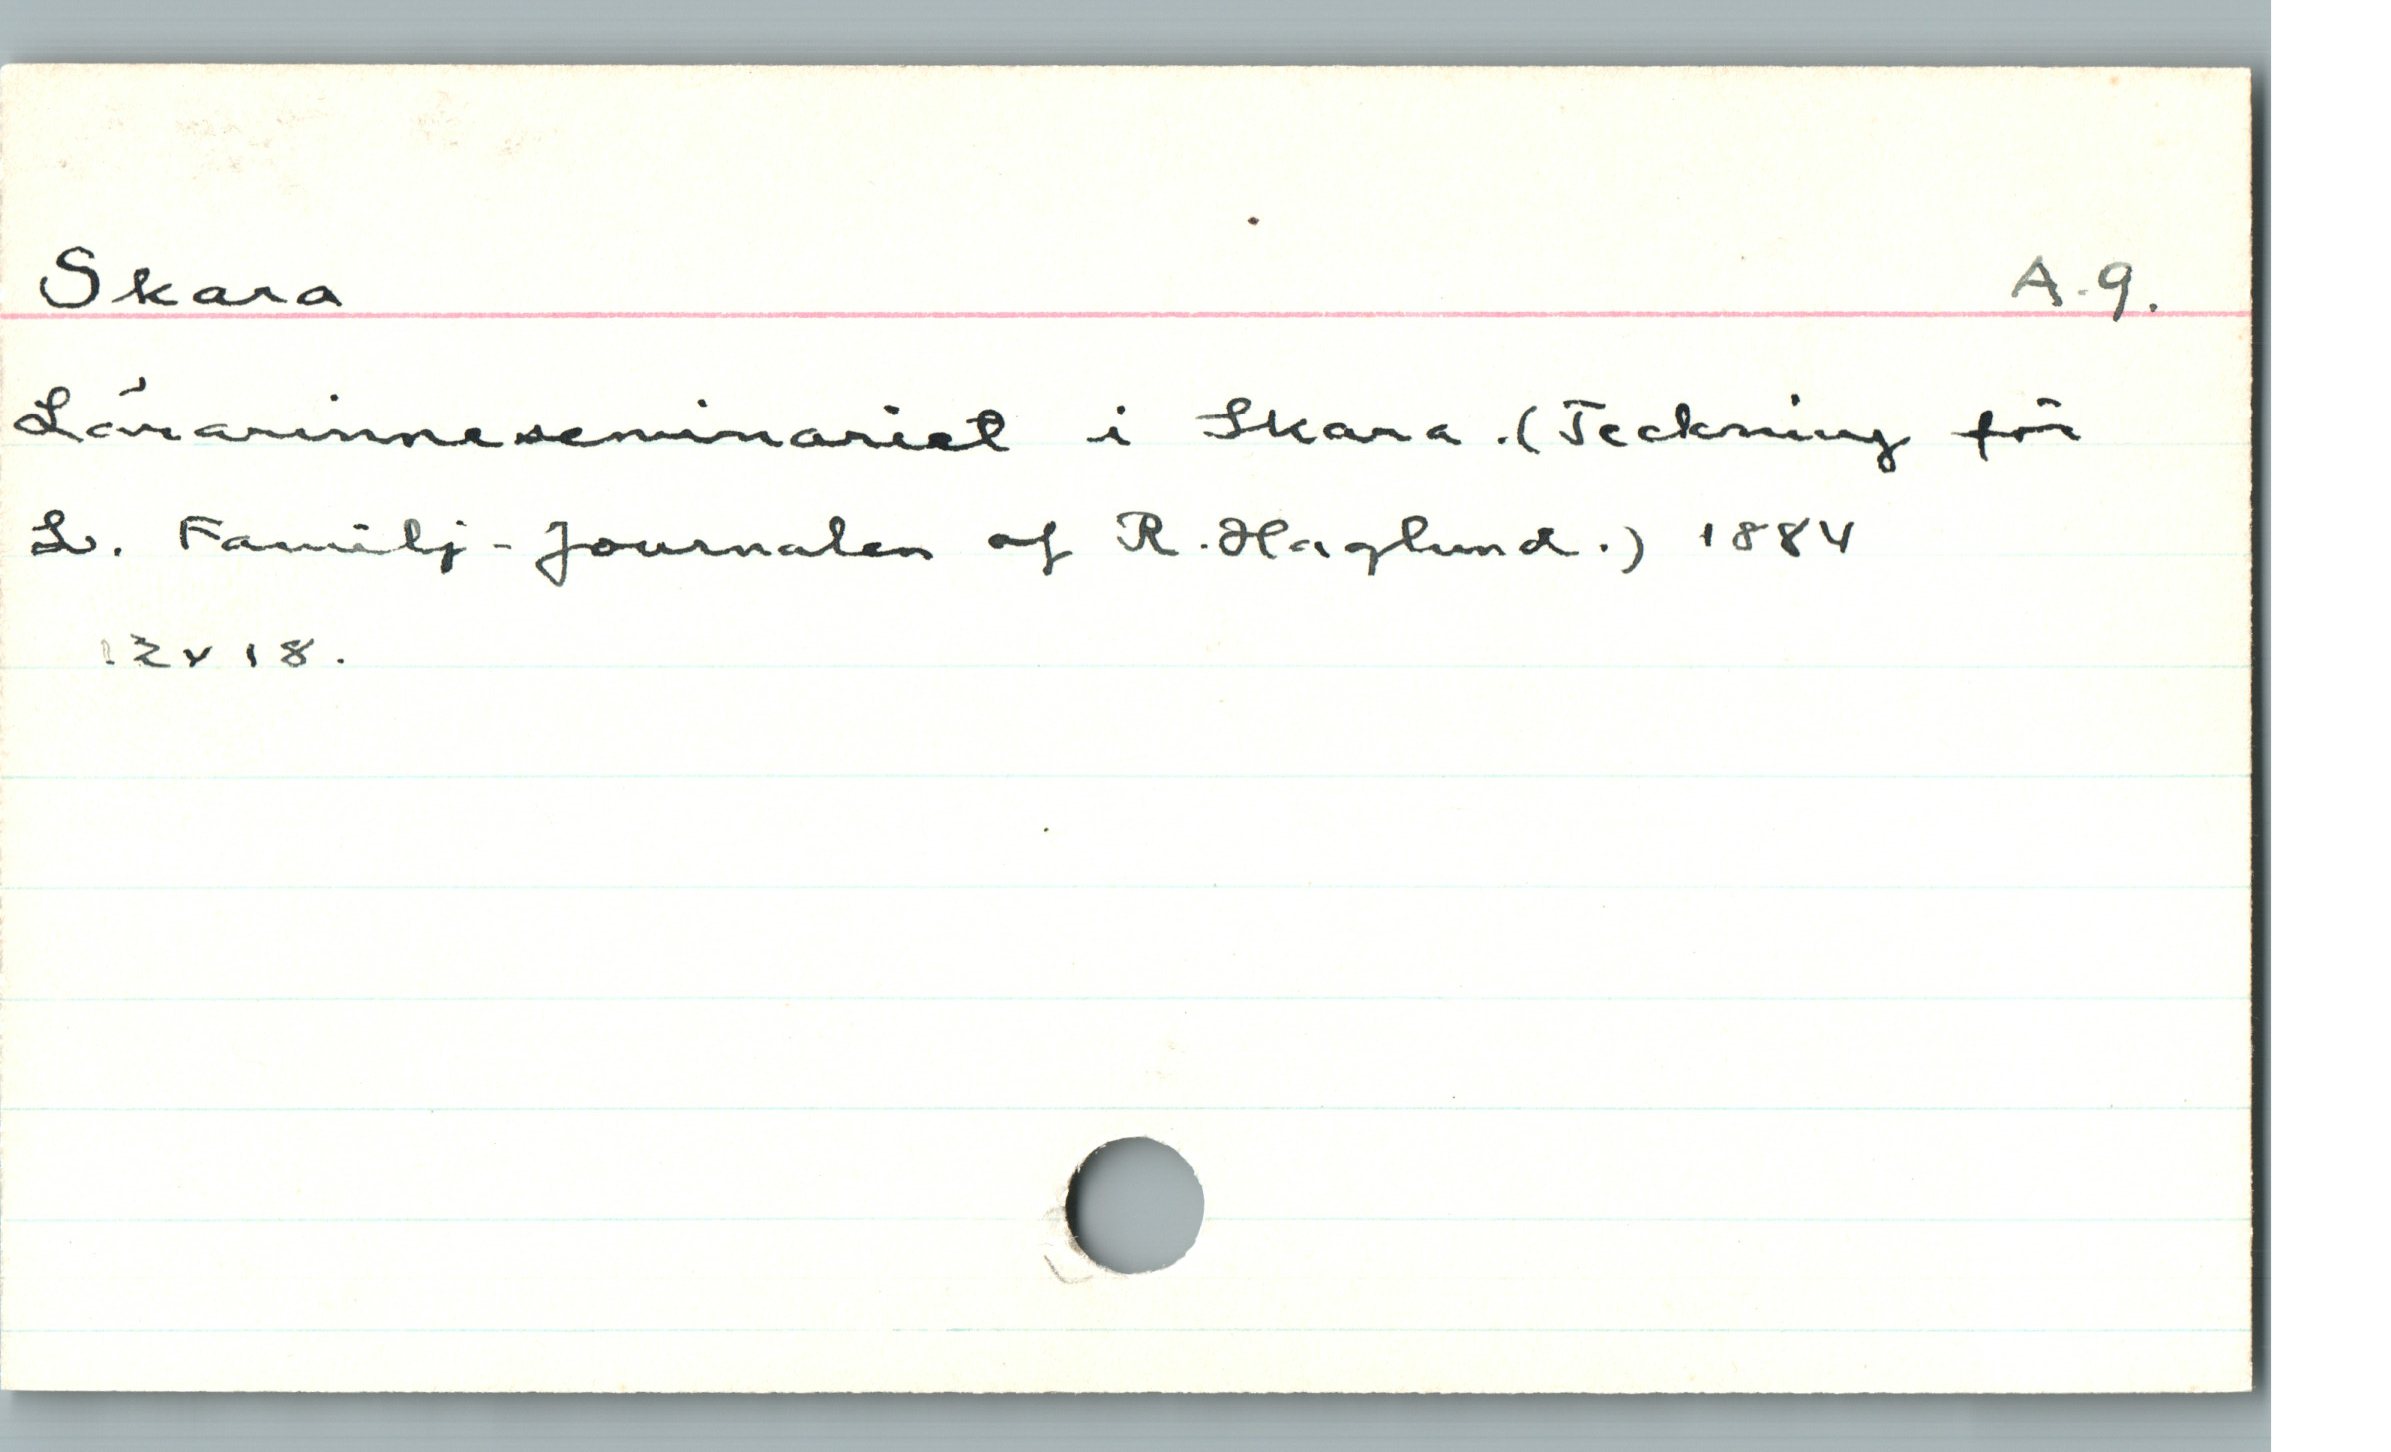 Skara A.9.
Lärarinneseminariet i Skara. (Teckning för
Sv. Familj-Journalen af R. Haglund.) 1884
12x18.